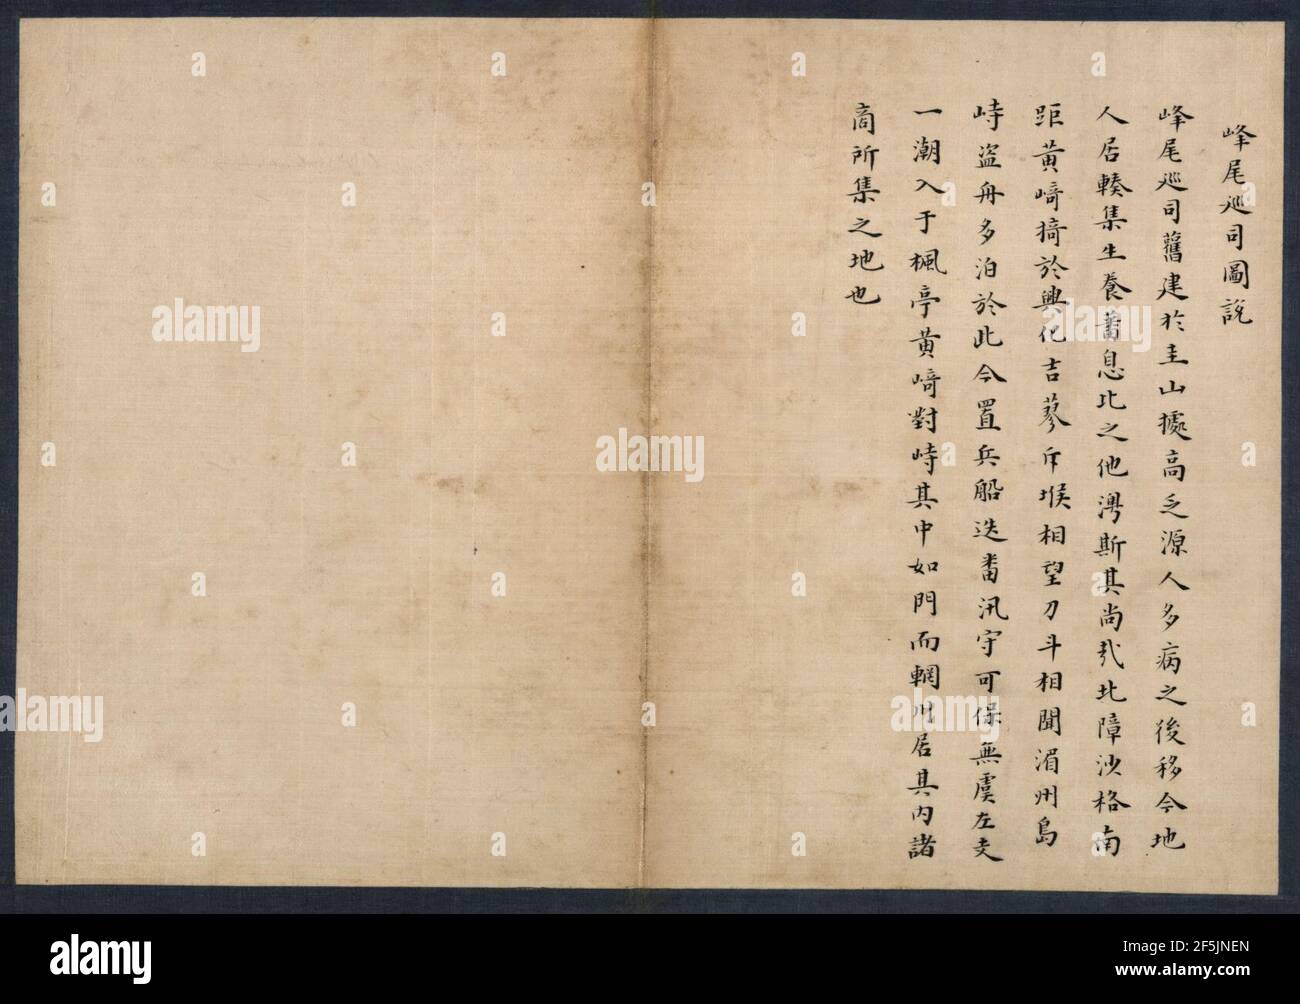 峰尾巡司圖說
峰尾巡司舊建於圭山據高乏源人多病之後移今地
人居輳集生養蕃息比之他灣斯其尚哉北障沙格南
距黃崎掎於興化吉蓼斥堠相望刀斗相聞湄州島
峙盜舟多泊於此今置兵船迭番汛守可保無虞左支
一潮入于楓亭黃崎對峙其中如門而輞川居其內諸
商所集之地也
alamy
alamy
alamy
alamy
alamy
Image ID: 2F5JNEN
www.alamy.com